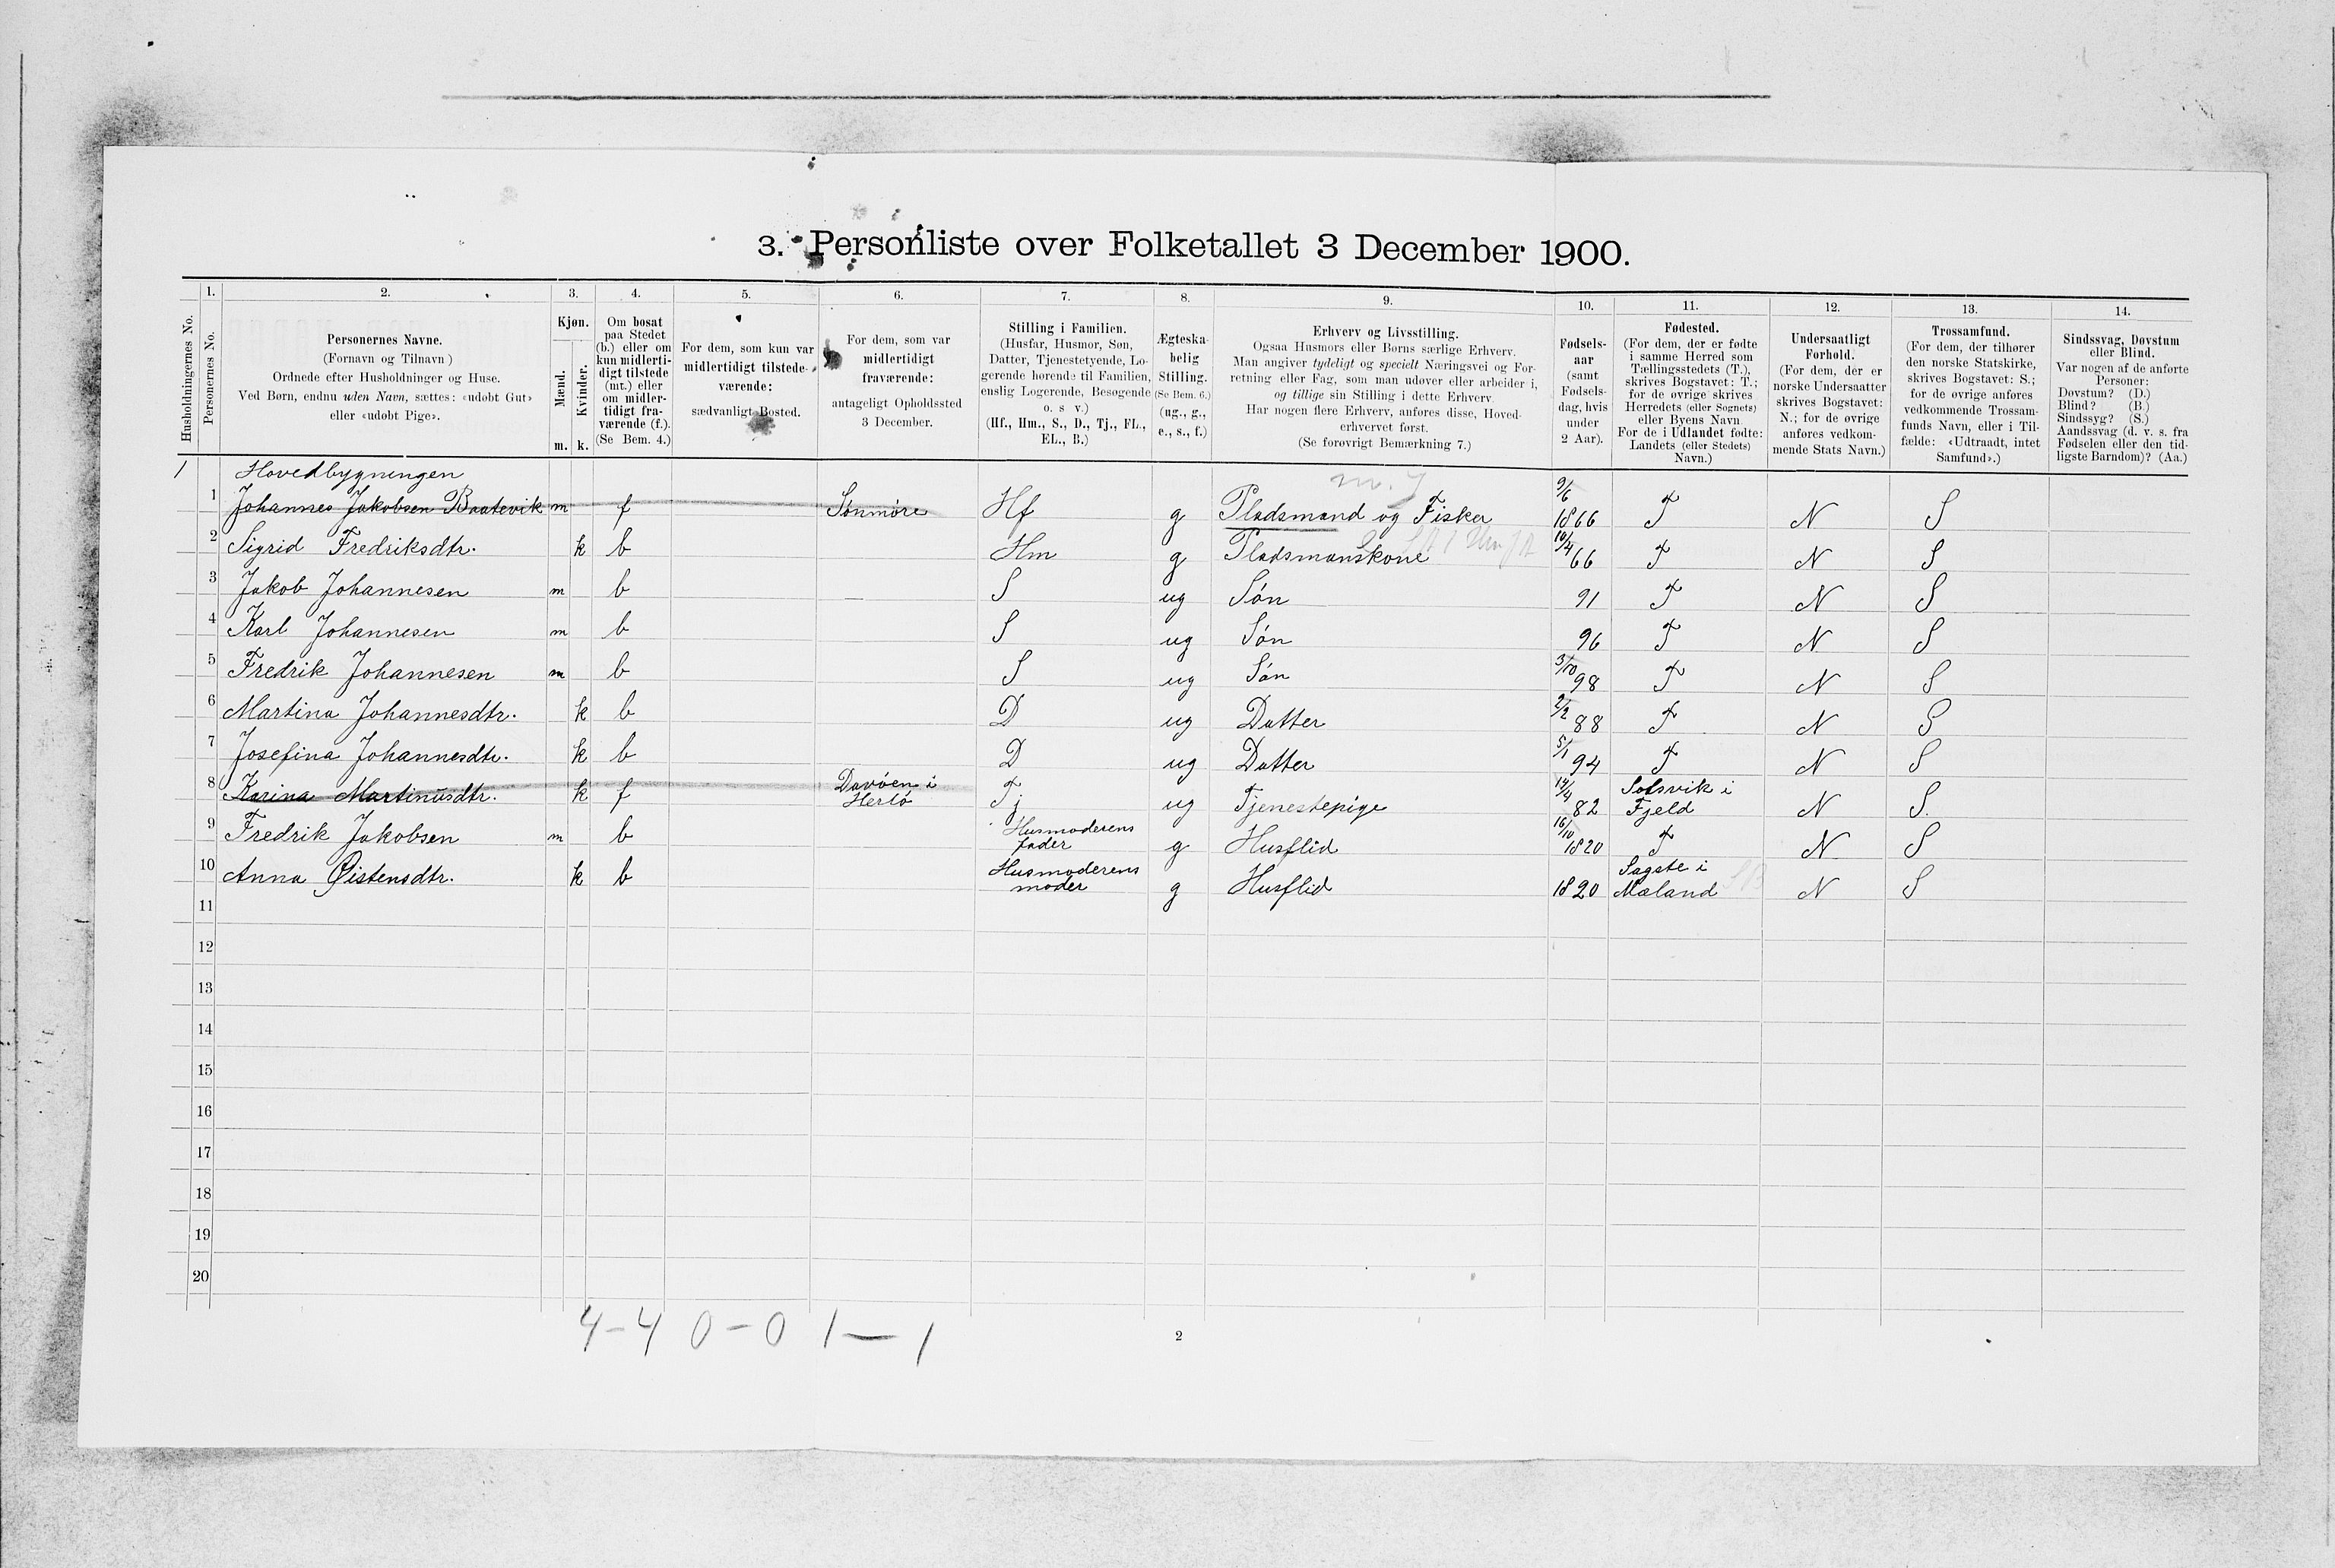 3. Personliste over Folketallet 3 December 1900.
1. 2. 3. 4. 5. 6. 7. 8. 9. 10. 11. 12. 13. 14.
Husholdningernes No.
Personernes No.
Personernes Navne.
(Fornavn og Tilnavn )
Ordnede efter Husholdninger og Huse.
Ved Børn, endnu uden Navn, sættes: «udøbt Gut»
eller «udøbt Pige».
Kjøn.
Mænd.
Kvinder.
m. k.
Om bosat
paa Stedet
(b.) eller om
kun midlerti-
digt tilstede
(mt.) eller
om midler-
tidigt fra-
værende (f.).
(Se Bem. 4.)
For dem, som kun var
midlertidigt tilstede-
værende:
sædvanligt Bosted.
For dem, som var
midlertidigt
fraværende:
antageligt Opholdssted
3 December.
Stilling i Familien.
(Husfar, Husmor, Søn,
Datter, Tjenestetyende, Lo-
gerende hørende til Familien,
enslig Logerende, Besøgende
o. s v.)
(Hf., Hm., S., D., Tj., FL.,
EL., B.)
Ægteska-
belig
Stilling.
(Se Bem. 6.)
(ug., g.,
e., s., f.)
Erhverv og Livsstilling.
Ogsaa Husmors eller Børns særlige Erhverv.
Man angiver tydeligt og specielt Næringsvei og For-
retning eller Fag, som man udøver eller arbeider i,
og tillige sin Stilling i dette Erhverv.
Har nogen flere Erhverv, anføres disse, Hoved-
erhvervet først.
(Se forøvrigt Bemærkning 7.)
Fødsels-
aar
(samt
Fødsels-
dag, hvis
under
2 Aar).
Fødested.
(For dem, der er fødte
i samme Herred som
Tællingsstedets (T.),
skrives Bogstavet: T.;
for de øvrige skrives
Herredets (eller Sognets)
eller Byens Navn
For de i Udlandet fødte:
Landets (eller Stedets)
Navn.)
Undersaatligt
Forhold.
(For dem, der er
norske Undersaatter
skrives Bogstavet:
N.; for de øvrige
anføres vedkom-
mende Stats Navn.)
Trossamfund.
(For dem, der tilhører
den norske Statskirke,
skrives Bogstavet: S.;
for de øvrige anføres
vedkommende Trossam-
funds Navn, eller i Til-
fælde: «Udtraadt, intet
Samfund».)
Sindssvag, Døvstum
eller Blind.
Var nogen af de anførte
Personer:
Døvstum? (D.)
Blind? (B.)
Sindssyg? (S.)
Aandssvag (d. v. s. fra
Fødselen eller den tid-
ligste Barndom)? (Aa.)
1 Hovedbygningen
1 Johannes Jakobsen Baatevik m f Sønmøre Hf g Pladsmand og Fisker 9/6 1866 T N S
2 Sigrid Fredriksdtr. k b Hm g Pladsmanskone 10/4 66 T N S
3 Jakob Johannesen m b S ug Søn 91 T N S
4 Karl Johannesen m b S ug Søn 96 T N S
5 Fredrik Johannesen m b S ug Søn 3/10 98 T N S
6 Martina Johannesdtr. k b D ug Datter 2/2 88 T N S
7 Josefina Johannesdtr. k b D ug Datter 5/1 94 T N S
8 Karina Martinusdtr. k f Davøen i Herlø Tj ug Tjenestepige 14/4 82 Solsvik i Fjeld N S.
9 Fredrik Jakobsen m b Husmoderens fader g Husflid 16/10 1820 T N S
10 Anna Øistensdtr. k b Husmoderens moder g Husflid 1820 Sagste i Mæland N S
11
12
13
14
15
16
17
18
19
20
4-4 0-0 1-1
2